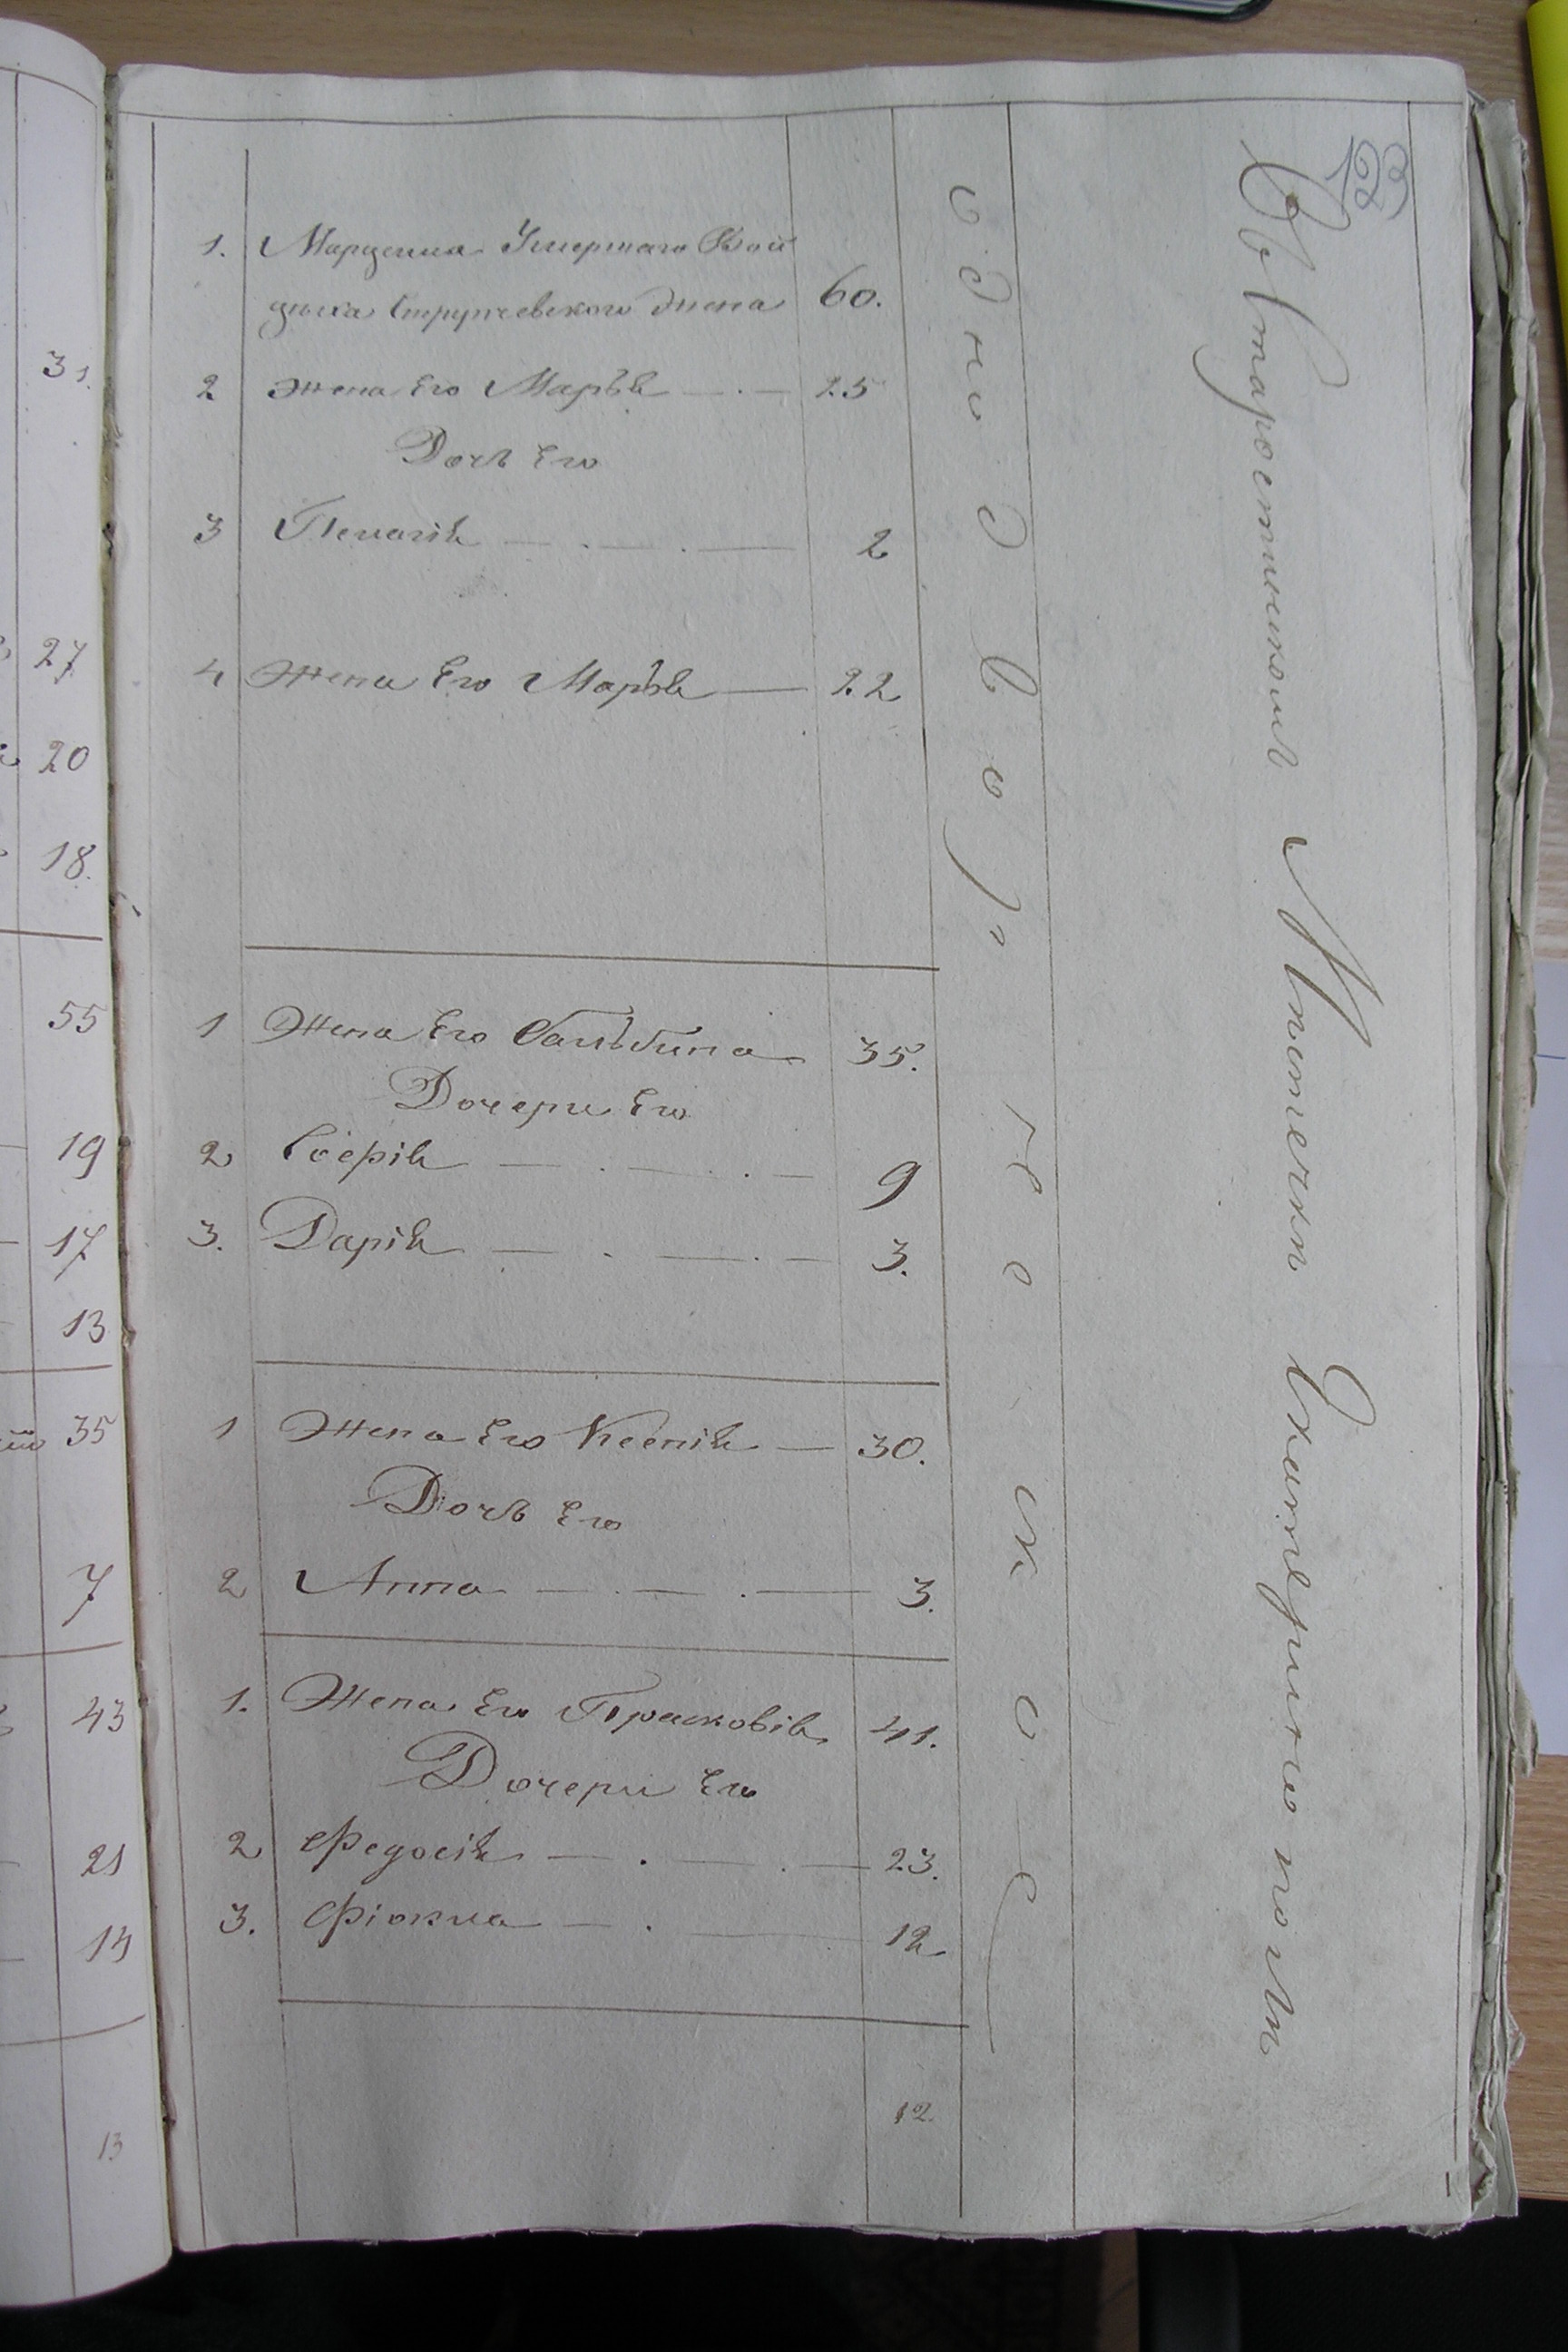 123
1. Марцелла Умершаго Вой
цѣха Струпчевского жена 60.
2 Жена Его Марья 25
Дочь Его
3 Пелагія 2
4 Жена Его Марья 22
1 Жена Его Бальбина 35.
Дочери Его
2 Софія 9
3. Дарія 3.
1 Жена Его Ксенія 30.
Дочь Его
2 Анна 3.
1. Жена Его Прасковія 41.
Дочери Его
2 Федосія 23.
3. Фіокла 12
12
однодворческое
Въ Старостинскомъ Мѣстечкѣ
31.
27
20
18.
55
19
17
13
35
7
43
21
14
13